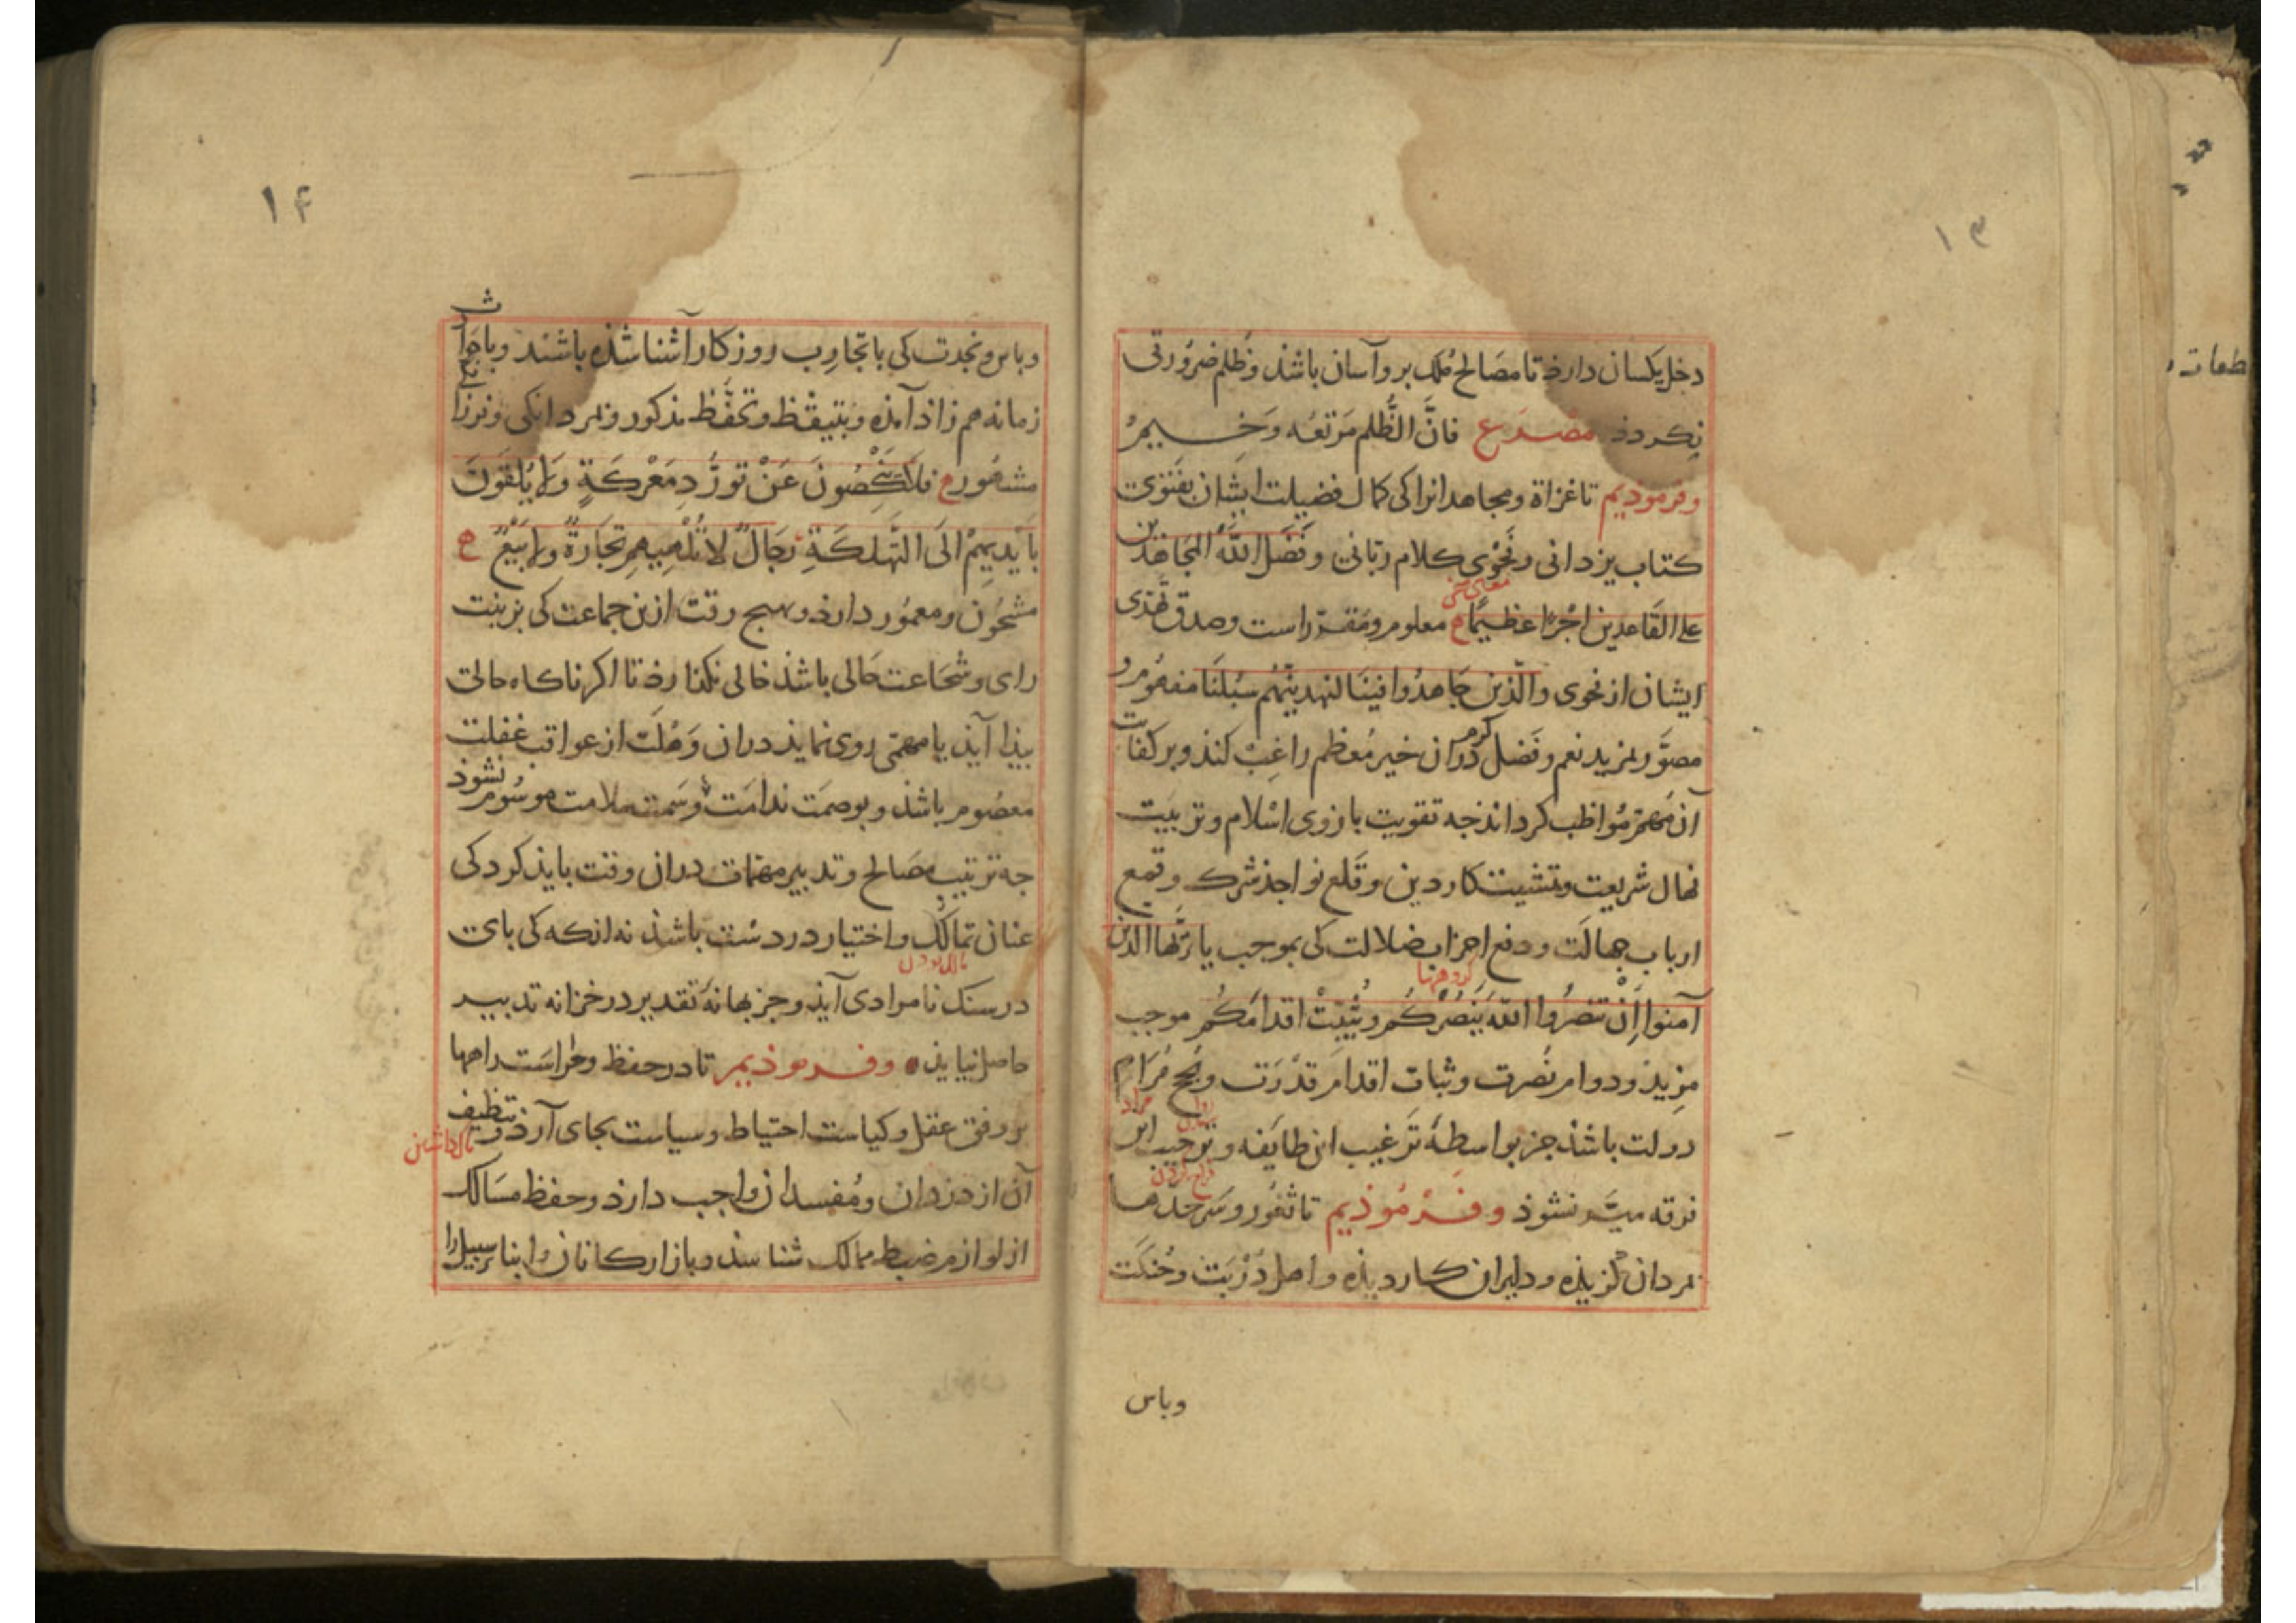 ۱۳
دخل یکسان دارذ تا مصَالح مُلک برو آسان باشذ و ظُلم ضرُورتی
نکردذ مصْرَع فَانَّ الظُّلم مَرتعُه وَخیمُ
وفرموذیم تا غزاة و مجاهدانرا کی کمال فضیلت ایشان بفَتوَی
کتاب یزدانی و فَحْوی کلام ربّانی وفَضَّل اللّهُ المجَاهدین
علی القَاعدین اجْرًا عظیمًا م معلوم و مُقرّر است و صدق تحَذی
معنی سخن
ایشان از فحوی والّذین جَاهدُوا فینَا لنهدینّهُم سُبُلنَا مفهُوم و
مصَوَّر بمزید نعم و فَضل کرم دران خیر مُعظم راغِبْ کند و بر کفایت
آن مُهمّ مُواظب کرداند جه تقویت بازوی اسْلام و تربیَت
نهال شریعت و تمشیت کار دین و قَلع نواجذ شرک و قمع
ارباب جهالَت و دفع احزاب ضلالت کی بموجب یا ایّها الذین
کروهها
آمنوا إِنْ تنصُرُوا اللّهَ یَنصُرْکُم ویُثَبِّتْ اقدامَکُم موجب
مزِیذ و دوام نُصرت و ثبات اقدام قدْرَت و نُجح مُرَام
روا
مراد
دولت باشذ جز بواسطهٔ تَرغیب ان طایَفه و ترحیب این
فرقه میسّر نشوذ وفرْمُوذیم تا ثغُور و سَرحَدّها
بمردان کزیذه و دلیران کار دیذه و اهل دُرْبَت و حُنکَت
وباس
۱۴
وباس ونجدت کی با تجارِب روزکار آشنا شذه باشند و با حوادث
زمانه هم زاذ آمذه و بتیقّظ و تحفُّظ مذکور و بمردانکی و فرزانکی
مشهُور م فلَا یَنْکِصُونَ عَنْ توَرُّدِ مَعْرکَةٍ وَلا یُلقَوَنَ
بایْدِیهِمْ الَی التَّهلکَةِ رجَالٌ لا تُلْهِیهِم تجَارَةٌ ولا بَیْعٌ م
مشحُون و معمُور دارذ و بهیج وقت ازین جماعت کی بزینت
رای و شجَاعت حَالی باشذ خالی نکذارذ تا اکر ناکاه حالتی
بیذا آیذ یا مهمّی روی نمایذ دران وَهْلَت از عواقب غفلت
معصُوم باشذ و بوصمَت ندامَت و سَمت ملامت موسُوم نشوذ
جه ترتیب مصَالح و تدبیر مهمّات دران وقت بایذ کرد کی
عنان تمالُک و اختیار در دسْت باشذ نه انکه کی بای
مالک بودن
در سنک نامرادی آیذ و جز بهانهٔ تقدیر در خزانه تدبیر
حاصل نیایذ وفرموذیم تا در حفظ و حراسَت راهها
بر وفق عقل و کیاست احتیاط و سیاست بجای آرذ و تنظیف
پاک داشتن
آن از دزدان و مُفسدان واجب دارذ و حفظ مسَالک
از لوازم ضبط ممالک شناسذ و بازارکانان و ابناء سبیل را